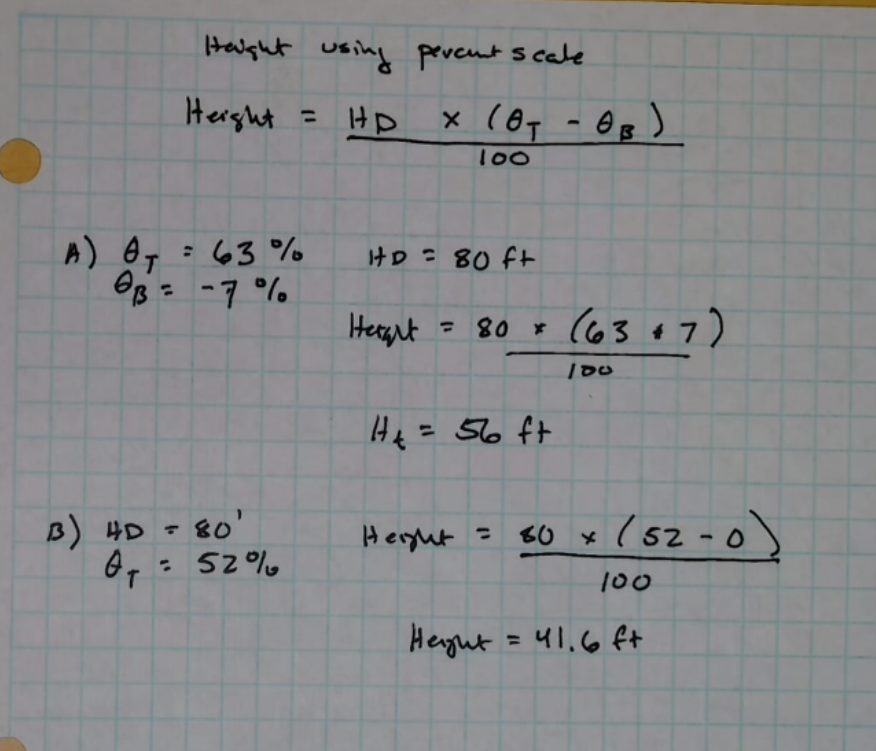 Height using percent scale
Height = HD × (θT - θB)
100
A) θT = 63 % HD = 80 ft
θB = -7 %
Height = 80 × (63 + 7)
100
Ht = 56 ft
B) HD = 80' Height = 80 × (52 - 0)
θT = 52%
100
Height = 41.6 ft